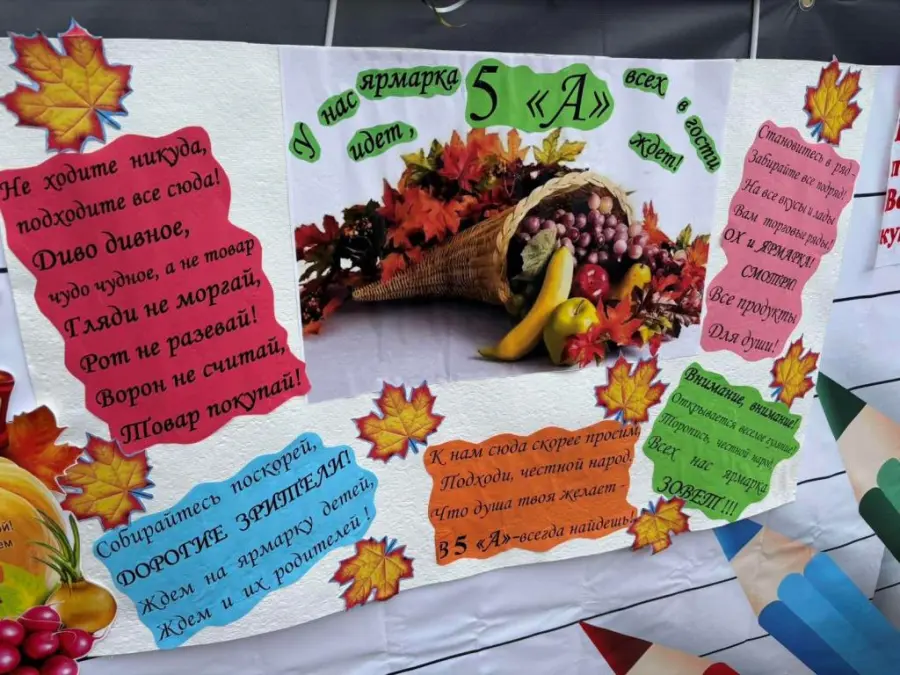 У нас ярмарка 5 «А» всех в гости
идет, ждет!
Не ходите никуда,
подходите все сюда!
Диво дивное,
чудо чудное, а не товар
Гляди не моргай,
Рот не разевай!
Ворон не считай,
Товар покупай!
Становитесь в ряд -
Забирайте все подряд!
На все вкусы и лады
Вам торговые ряды!
ОХ и ЯРМАРКА!
СМОТРИ!
Все продукты
Для души!
Собирайтесь поскорей,
ДОРОГИЕ ЗРИТЕЛИ!
Ждем на ярмарку детей,
Ждем и их родителей !
К нам сюда скорее просим,
Подходи, честной народ,
Что душа твоя желает -
В 5 «А»-всегда найдешь!
Внимание, внимание!
Открывается веселое гуляние!
Торопись, честной народ,
Всех нас ярмарка
ЗОВЕТ!!!